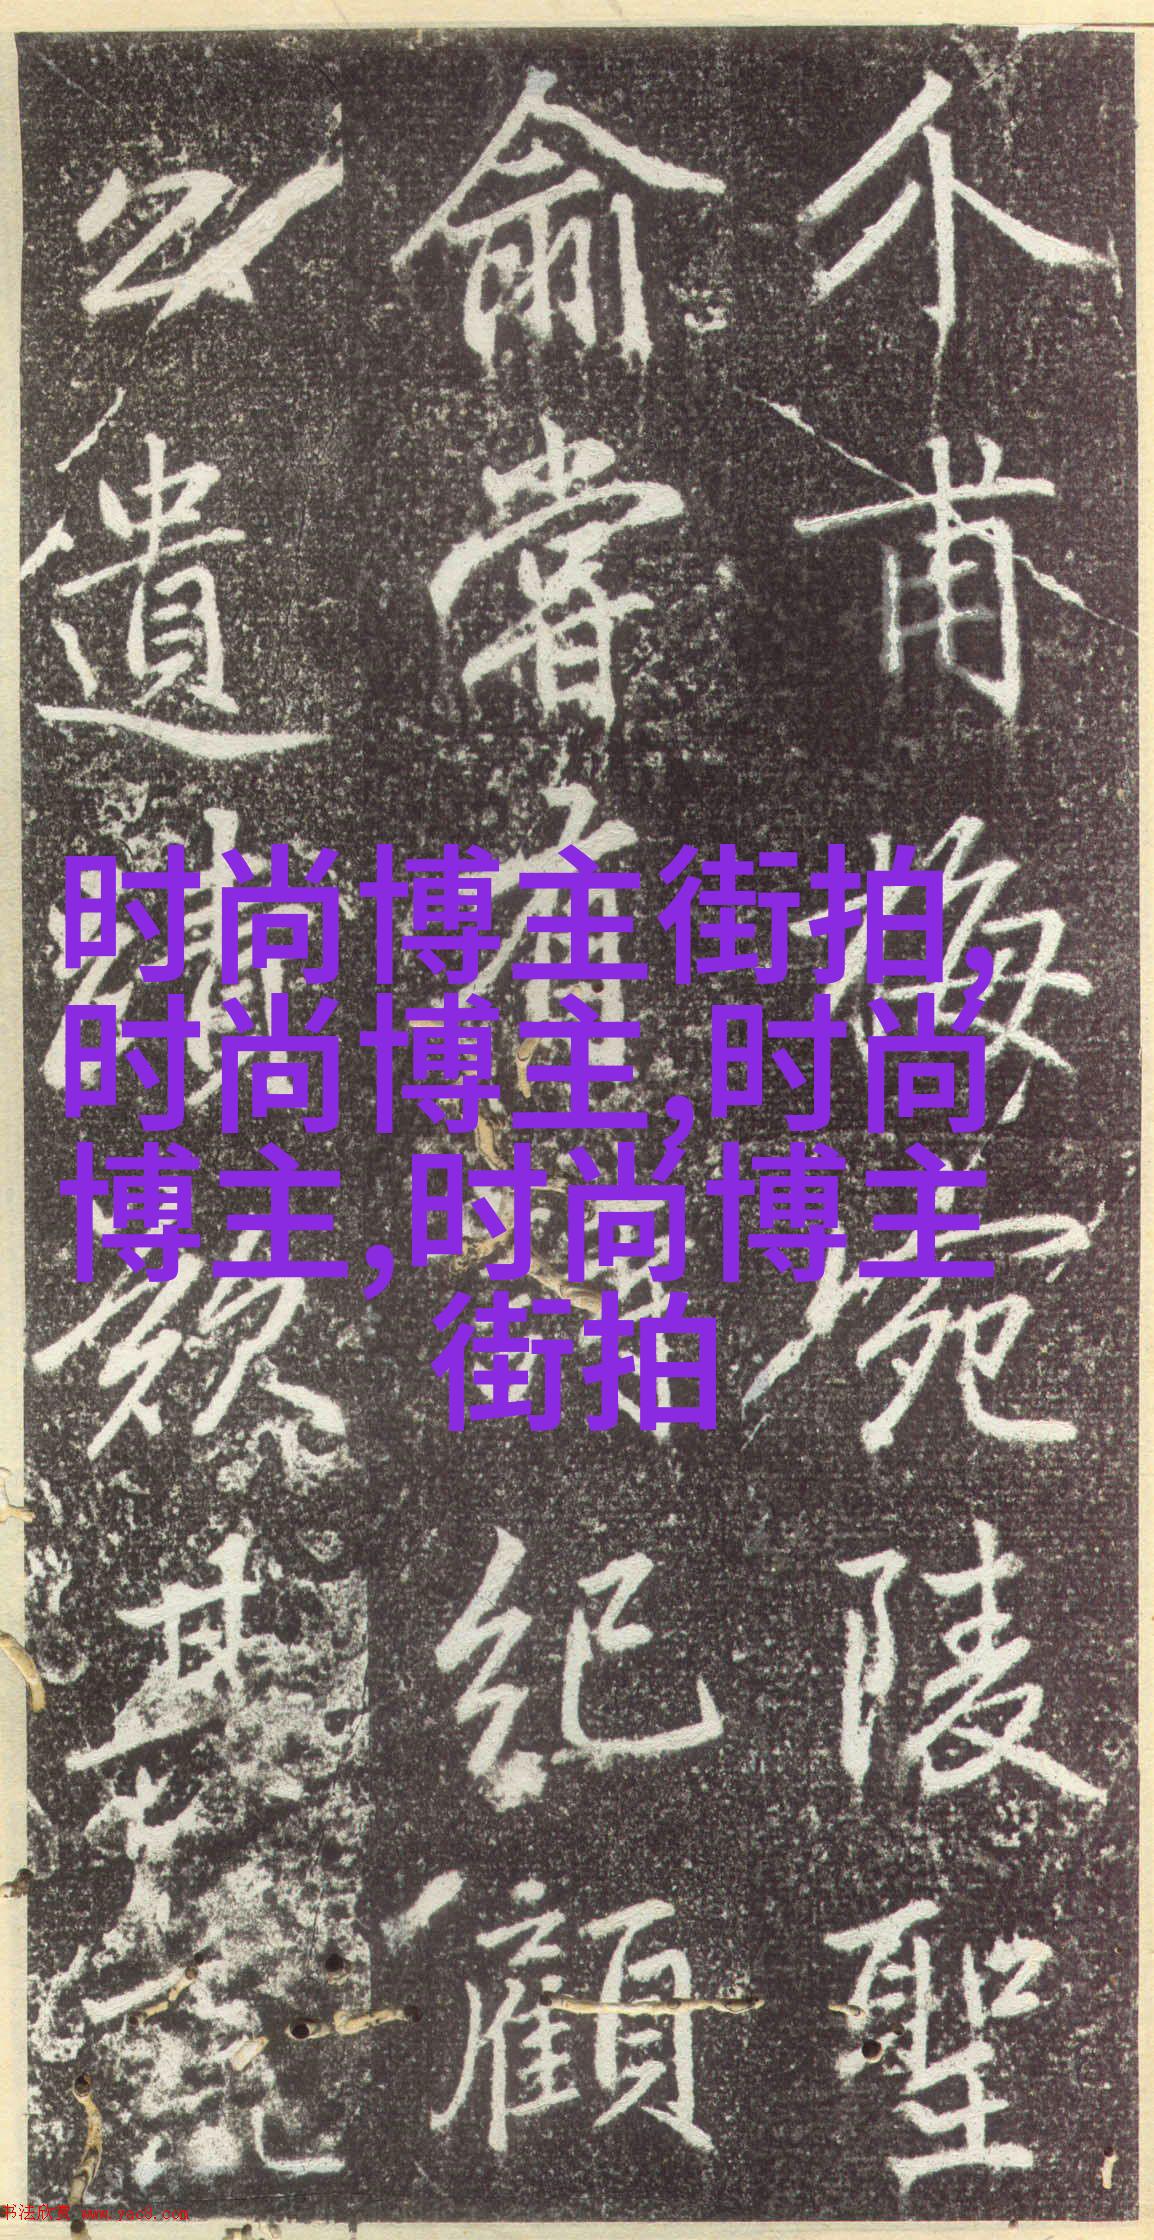 时尚博主街拍,
时尚博主,时尚
博主,时尚博主
街拍
介甫梅宛陵聖
俞嘗有紀顧
公遺其
书法欣赏 www.yac8.com